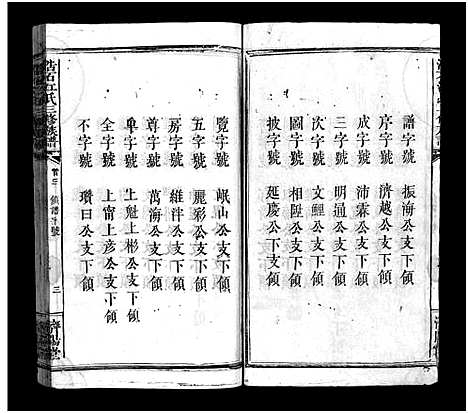 譜字號 振海公支下領
序字號 濟越公支下領
成字號 沛霖公支下領
三字號 明通公支下領
次字號 文鯉公支下領
圖字號 相陞公支下領
披字號 延慶公支下領
覽字號 岷山公支下領
五字號 麗彩公支下領
房字號 維泮公支下領
尊字號 萬海公支下領
卑字號 上魁上彬公支下領
全字號 上甯上彥公支下領
不字號 瓚曰公支下領
浩石江氏三修族譜
領譜字號
三
濟陽堂